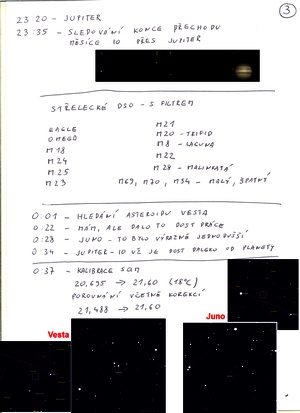 3
23:20 - JUPITER
23:35 - SLEDOVÁNÍ KONCE PŘECHODU
MĚSÍCE IO PŘES JUPITER
STŘELECKÉ DSO - S FILTREM
EAGLE
OMEGA
M18
M24
M25
M23
M21
M20 - TRIFID
M8 - LAGUNA
M22
M28 - MALINKATÁ
M69, M70, M54 - MALÝ, ŠPATNÝ
0:01 - HLEDÁNÍ ASTEROIDU VESTA
0:22 - MÁM, ALE DALO TO DOST PRÁCE
0:28 - JUNO - TO BYLO VÝRAZNĚ JEDNODUŠŠÍ
0:34 - JUPITER - IO UŽ JE DOST DALEKO OD PLANETY
0:37 - KALIBRACE SQM
20,695 → 21,60 (18°C)
POROVNÁNÍ VČETNĚ KOREKCÍ
21,488 → 21,60
Juno
Vesta